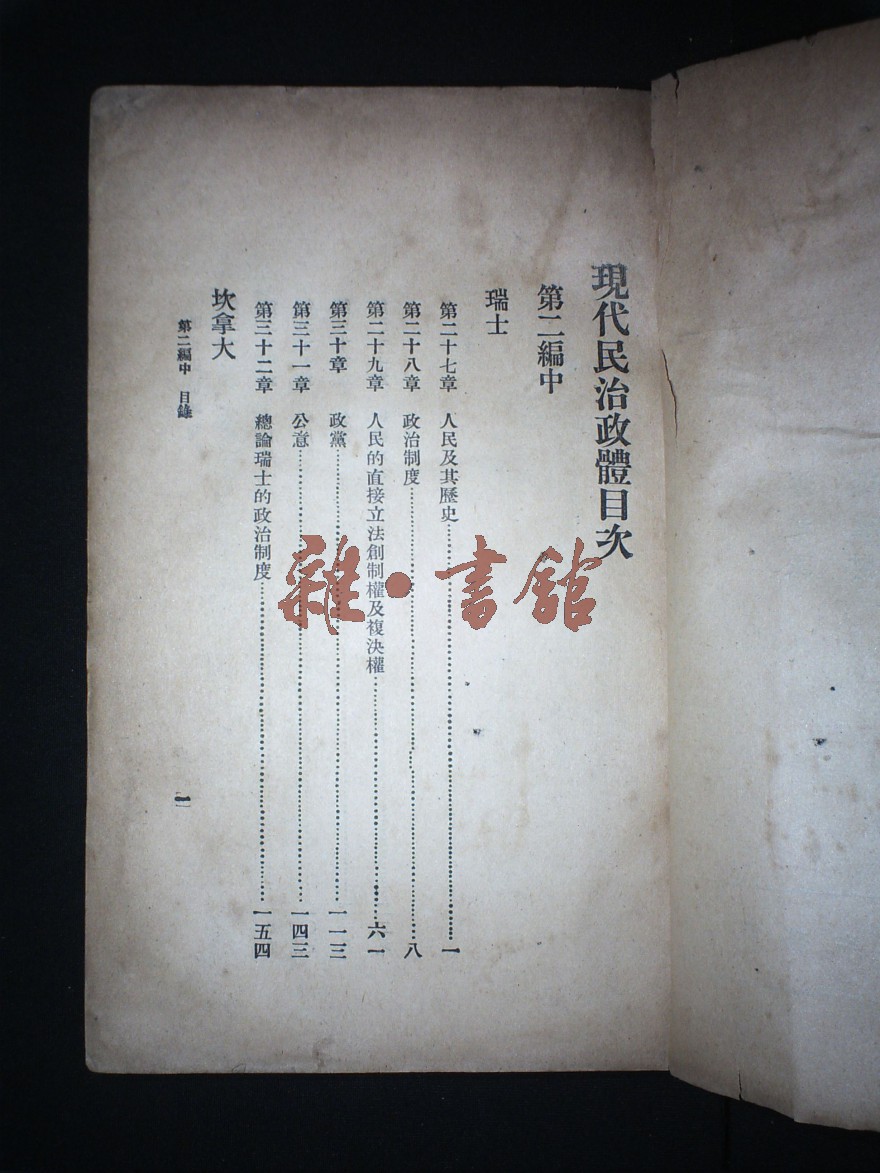 現代民治政體目次
第二編中
瑞士
第二十七章 人民及其歷史……一
第二十八章 政治制度……八
第二十九章 人民的直接立法創制權及複決權……六一
第三十章 政黨……一一三
第三十一章 公意……一四三
第三十二章 總論瑞士的政治制度……一五四
坎拿大
第二編中 目錄
一
雜·書館